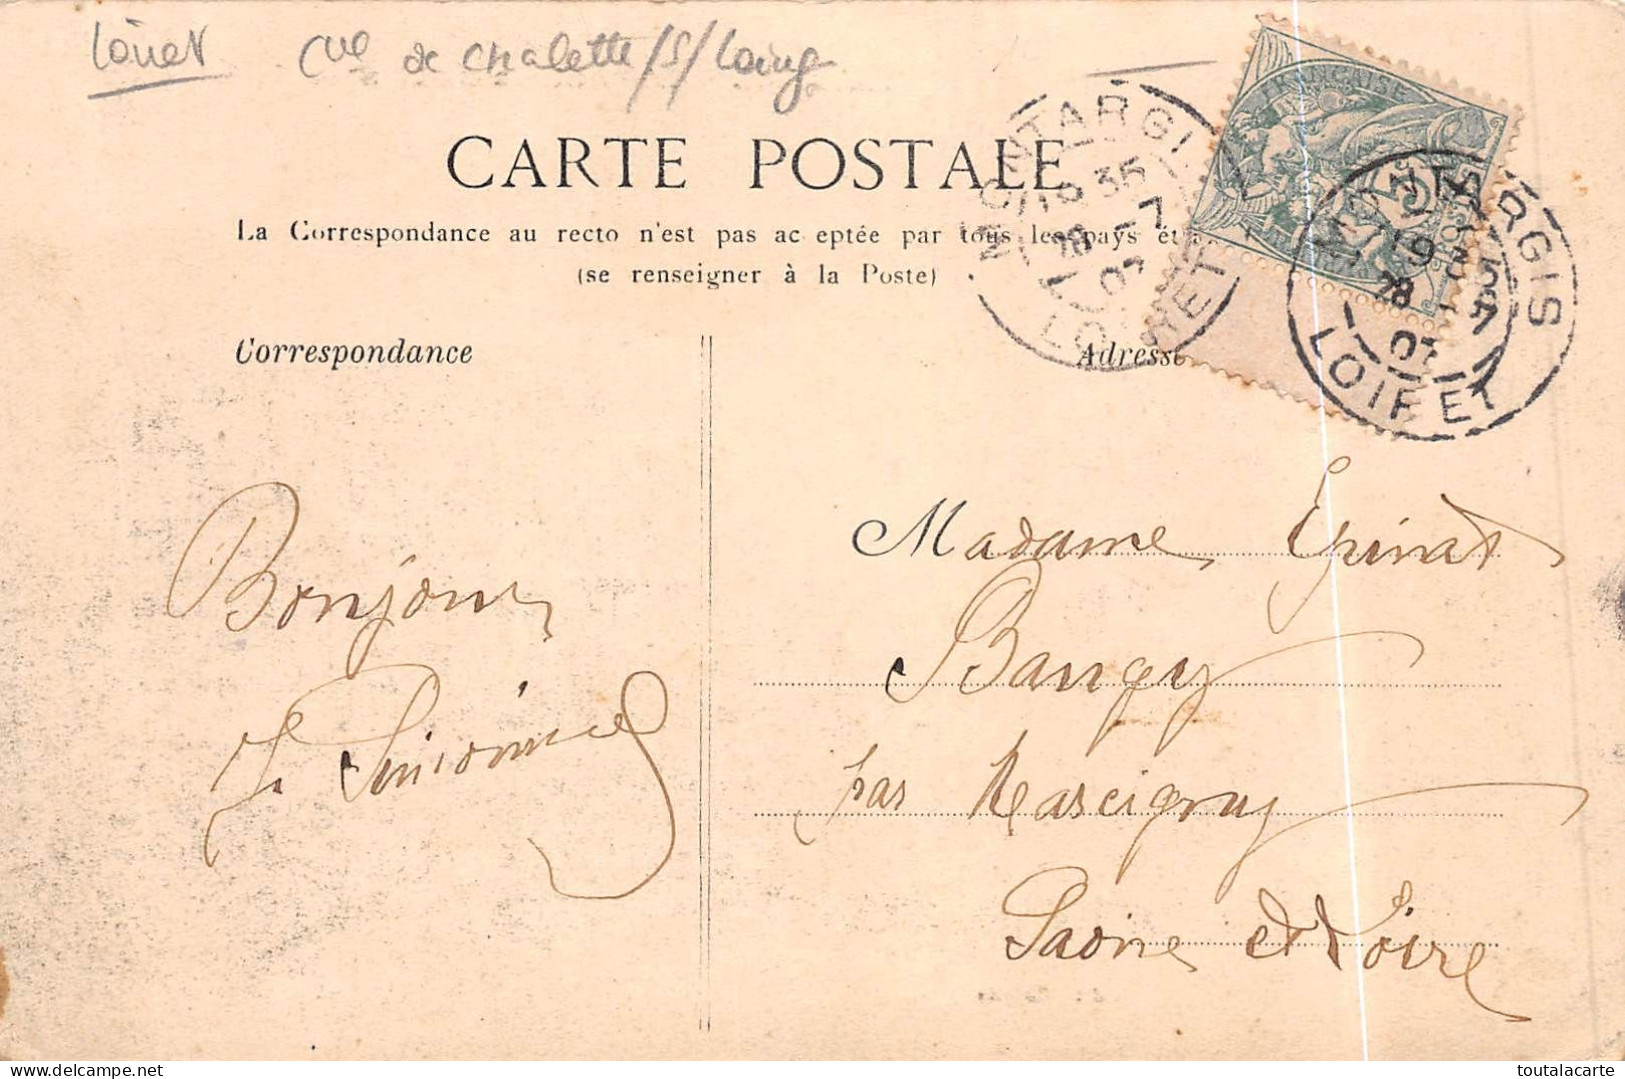 Loiret Cne de Chalette/s/Loing
CARTE POSTALE
La Correspondance au recto n'est pas acceptée par tous les pays et
(se renseigner à la Poste)
Correspondance
Adresse
FRANÇAISE
POSTES
5
MONTARGIS
18 35
28 -7
07
LOIRET
MONTARGIS
19 35
28 -7
07
LOIRET
Bonjour
Madame Epinat
Bangy
par Marcigny
Saone et Loire
Delcampe.net
toutalacarte